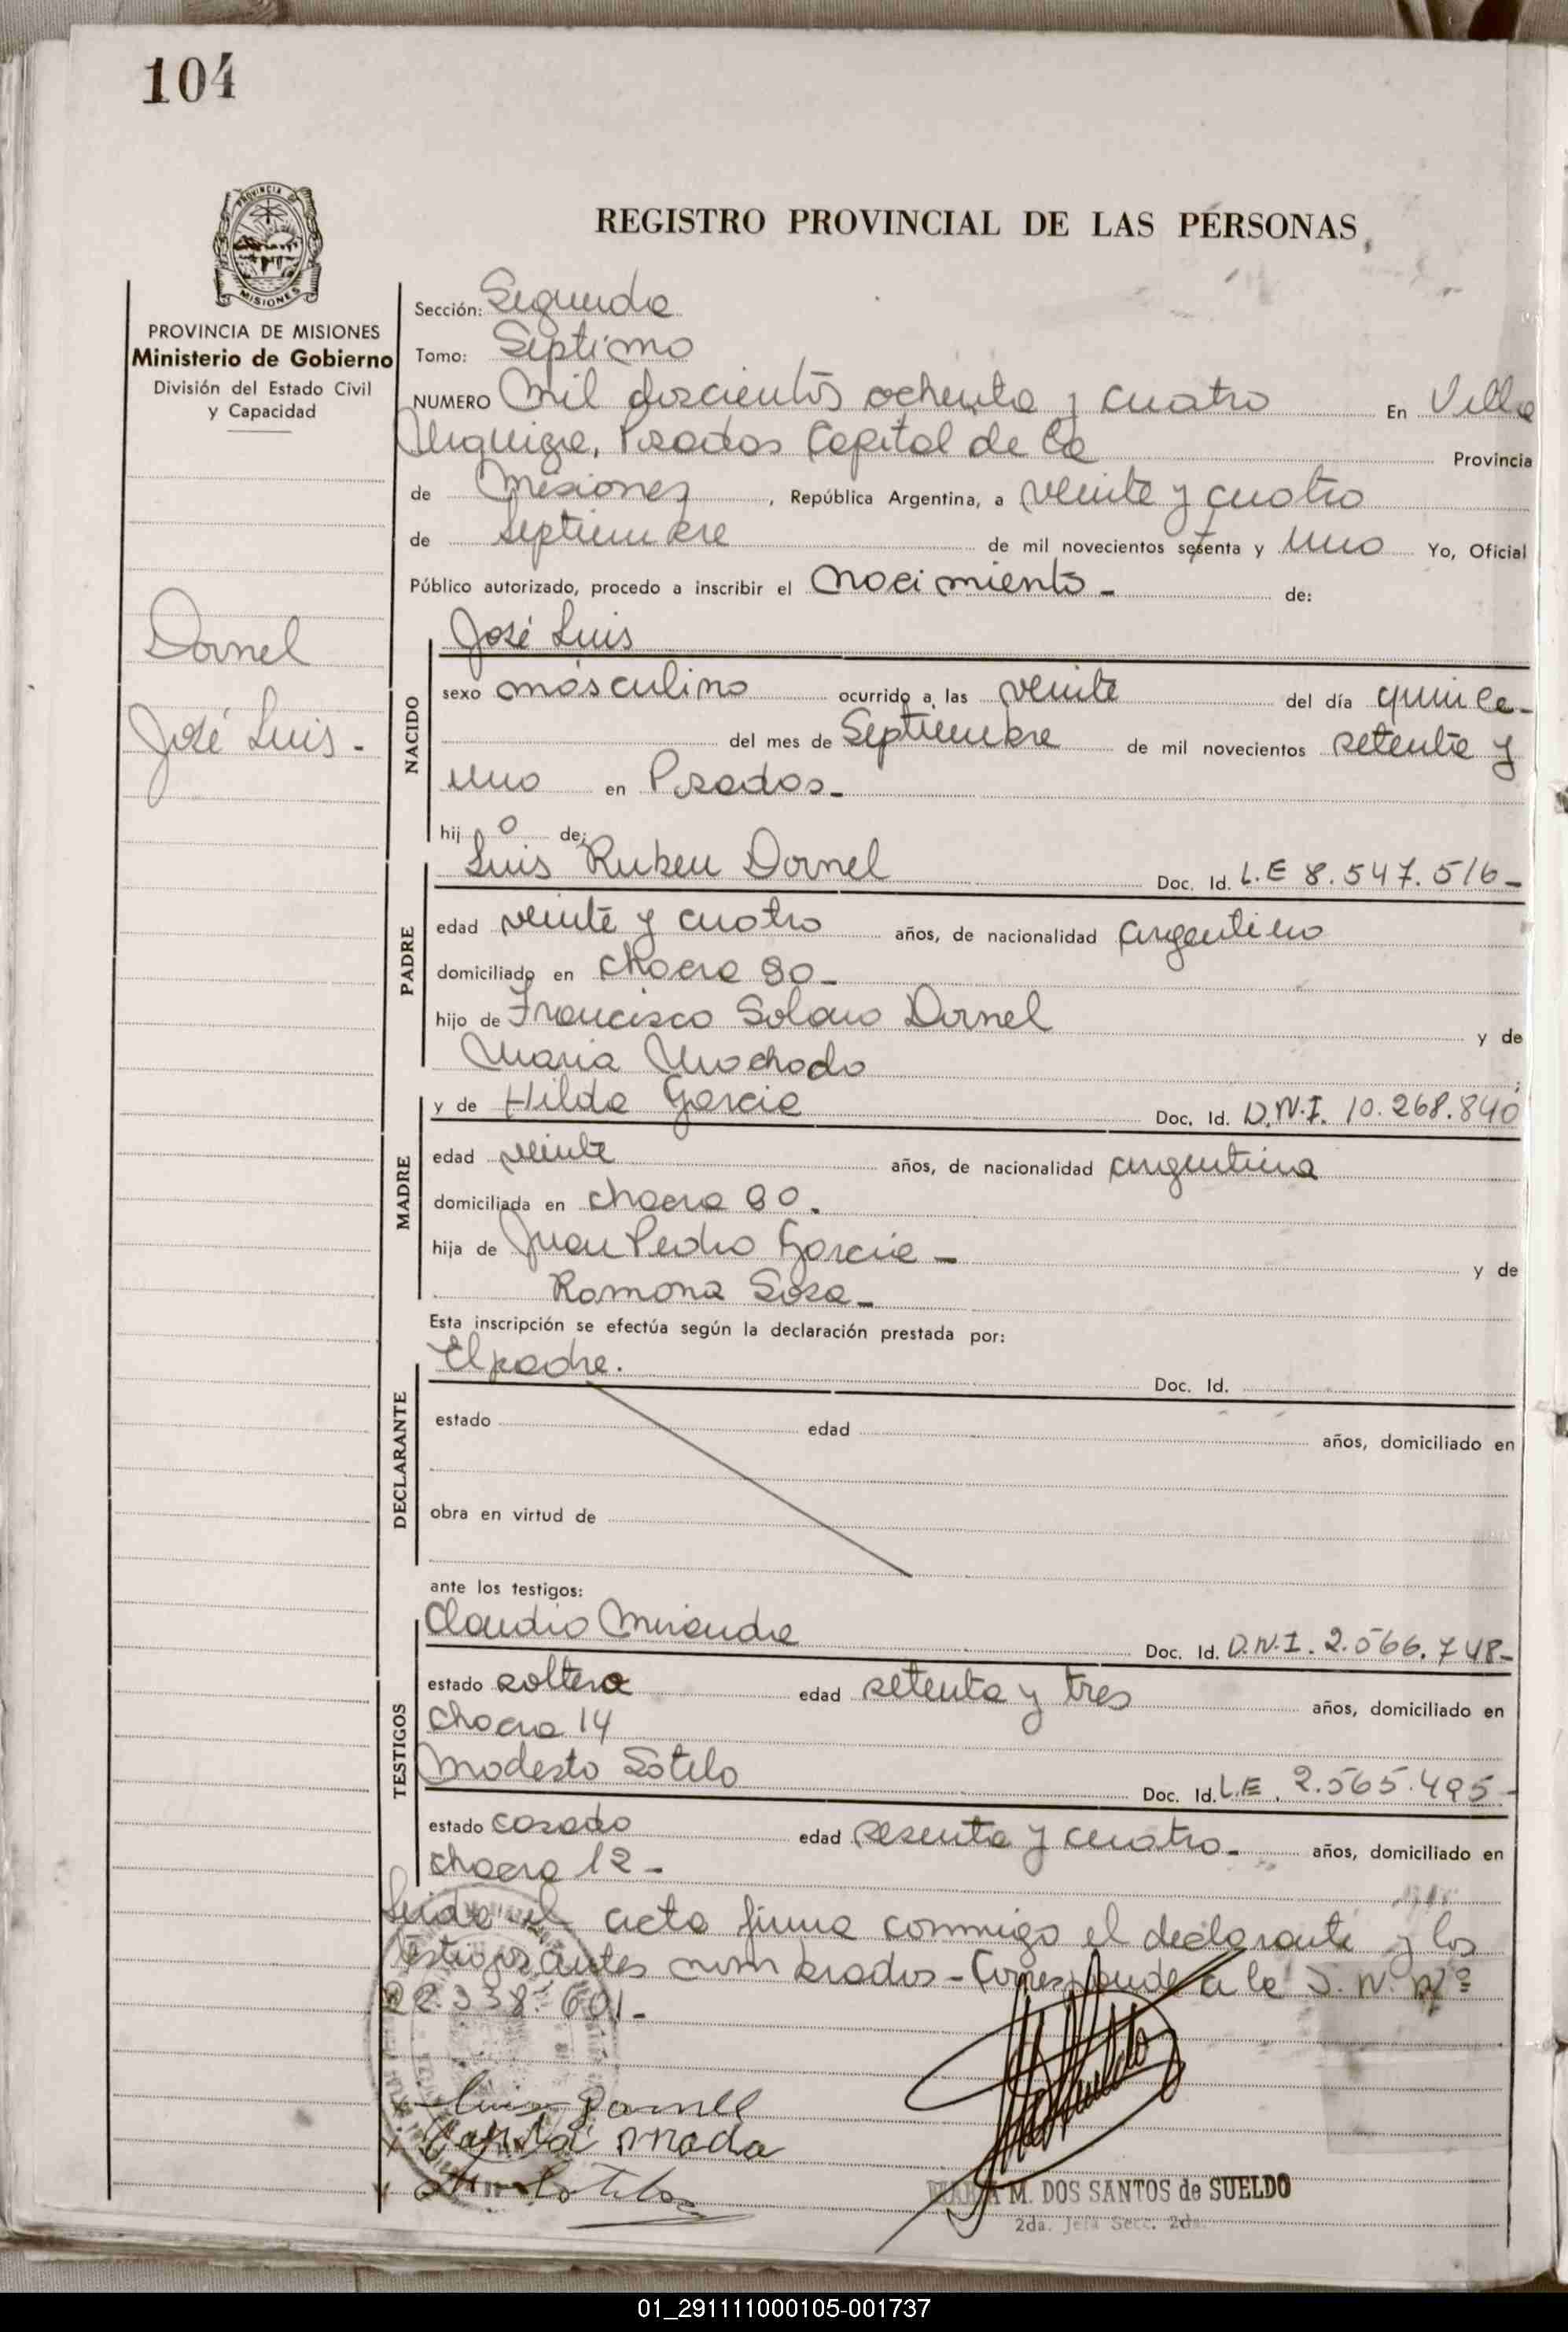 104
PROVINCIA DE
MISIONES
REGISTRO PROVINCIAL DE LAS PERSONAS
PROVINCIA DE MISIONES
Ministerio de Gobierno
División del Estado Civil
y Capacidad
Dornel
José Luis -
Sección: Segunda
Tomo: Séptimo
NUMERO Mil doscientos ochenta y cuatro En Villa
Urquiza, Posadas Capital de la Provincia
de Misiones, República Argentina, a veinte y cuatro
de Septiembre de mil novecientos setenta y uno Yo, Oficial
Público autorizado, procedo a inscribir el nacimiento - de:
NACIDO
José Luis
sexo masculino ocurrido a las veinte del día quince -
del mes de Septiembre de mil novecientos setenta y
uno en Posadas -
hij o de:
PADRE
Luis Ruben Dornel Doc. Id. L.E 8.547.516 -
edad veinte y cuatro años, de nacionalidad argentino
domiciliado en chacra 80 -
hijo de Francisco Solano Dornel y de
Maria Machado
MADRE
y de Hilda Garcia Doc. Id. D.N.I. 10.268.840
edad veinte años, de nacionalidad argentina
domiciliada en chacra 80.
hija de Juan Pedro Garcia - y de
Ramona Sosa -
Esta inscripción se efectúa según la declaración prestada por:
DECLARANTE
El padre. Doc. Id.
estado edad años, domiciliado en
obra en virtud de
ante los testigos:
TESTIGOS
Claudio Miranda Doc. Id. D.N.I. 2.566.748 -
estado soltero edad setenta y tres años, domiciliado en
chacra 14
Modesto Sotelo Doc. Id. L.E. 2.565.495 -
estado casado edad sesenta y cuatro - años, domiciliado en
chacra 12 -
Leida el acta firma conmigo el declarante y los
testigos antes nombrados - Corresponde a la I. N. Nº
22.338.601 -
Luis Dornell
MARIA M. DOS SANTOS de SUELDO
2da. Jefa Secc. 2da.
01_291111000105-001737